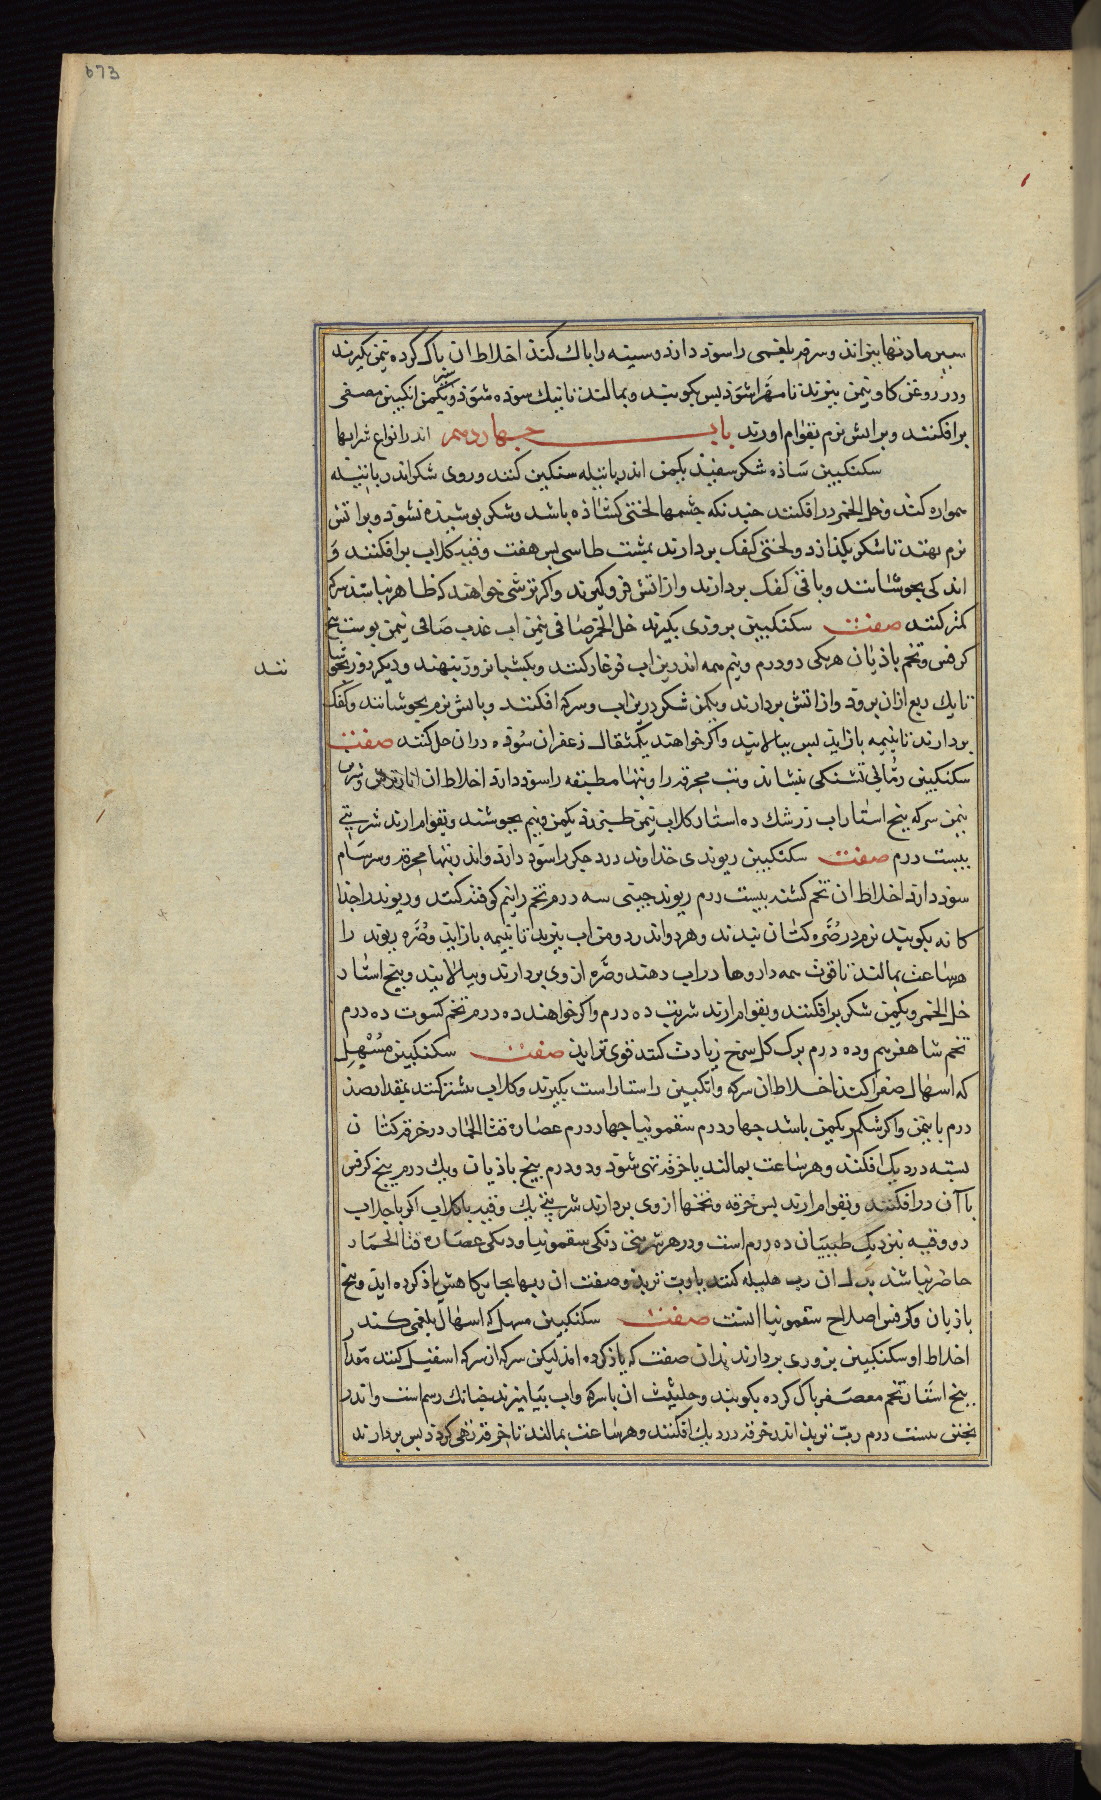 673
سپر مادتها بپزاند و سرفه بلغمی را سود دارد و سینه را پاک کند اخلاط ان پاک کرده نیمن بکیرند
و در روغن کاو نیمن بپزند تا مهرا شود پس بکوبند و بمالند تا نیک سوده شود و یکمن انکبین مصفی
برافکنند و برآتش نرم بقوام اورند باب چهاردهم اندر انواع شرابها
سکنکبین ساذه شکر سفید یکمن اندر پاتیله سنکین کنند و روی شکر اندر پاتیله
همواره کنند و خل الخمر درافکنند چندانکه چشمها لختی کشاذه باشد و شکر پوشیده نشود و براتش
نرم نهند تا شکر بکذازد و لختی کفک بردارند بمشت طاسی پس هفت وقیه کلاب برافکنند و
اندکی بجوشانند و باقی کفک بردارند و از اتش فروکیرند و اکر ترشی خواهند که ظاهر نباشد سرکه
کمتر کنند صفت سکنکبین بزوری بکیرند خل الخمر صافی نیمن اب عذب صافی نیمن پوست بیخ
کرفس و تخم باذیان هریکی دو درم و نیم همه اندرین اب فرغار کنند و یکشبانروز بنهند و دیکر روز بجوشا
نند
تا یک ربع ازان برود و از اتش بردارند و یکمن شکر درین اب و سرکه افکنند و باتش نرم بجوشانند و کفک
بردارند تا بنیمه بازاید پس بپالایند و اکر خواهند یکمثقال زعفران سوده دران حل کنند صفت
سکنکبین رمانی تشنکی بنشاند و تب محرقه را و تبها مطبقه را سود دارد اخلاط ان انار ترش
نیمن سرکه پنج استار اب زرشک ده استار کلاب نیمن یکمن و نیم بجوشند و بقوام ارند شربتی
بیست درم صفت سکنکبین ریوندی خداوند درد جکر را سود دارد و اندر تبها محرقه و سرسام
سود دارد اخلاط ان تخم کشنه بیست درم ریوند چینی سه درم تخم را نیم کوفته کنند و ریوند را جذا
کانه بکوبند نرم در صره کتان بندند و هردو اندر دو من اب بپزند تا بنیمه بازاید و صره ریوند را
هرساعت بمالند تا قوت همه داروها در اب دهند و صره از وی بردارند و بپالایند و پنج استار
خل الخمر و یکمن شکر برافکنند و بقوام ارند شربت ده درم و اکر خواهند ده درم تخم کسوت ده درم
تخم شاهفرم و ده درم برک کل سرخ زیادت کنند قوی تر اید صفت سکنکبین مسهل
که اسهال صفرا کند اخلاط ان سرکه و انکبین راستاراست بکیرند و کلاب بیشتر کنند بمقدار صد
درم با نیمن و اکر شکر یکمن باشد چهار درم سقمونیا چهار درم عصاره قثا الحمار در خرقه کتان
بسته در دیک افکنند و هرساعت بمالند تا خرقه تهی شود و دو درم بیخ باذیان و یک درم بیخ کرفس
باآن درافکنند و بقوام ارند پس خرقه و تخمها ازوی بردارند شربتی یک وقیه با کلاب اکر با جلاب
دو وقیه بنزدیک طبیبان ده درم است و در هر شربتی دنکی سقمونیا و دنکی عصاره قثا الحمار
حاضر نباشد بدل ان رب هلیله کنند یا رب تربد و صفت ان ربها بجایکاهش یاذ کرده اید و بیخ
باذیان و کرفس اصلاح سقمونیا است صفت سکنکبین مسهل که اسهال بلغمی کند
اخلاط او سکنکبین بزوری بردارند بدان صفت که یاذ کرده امد لیکن سرکه از سرکه اسقیل کنند مقدار
پنج استار تخم معصفر پاک کرده بکوبند و حلیثیث ان با سرکه و اب بیامیزند چنانک رسم است و اندر
پختن بیست درم رب تربد اندر خرقه در دیک افکنند و هرساعت بمالند تا خرقه تهی کردد پس بردارند